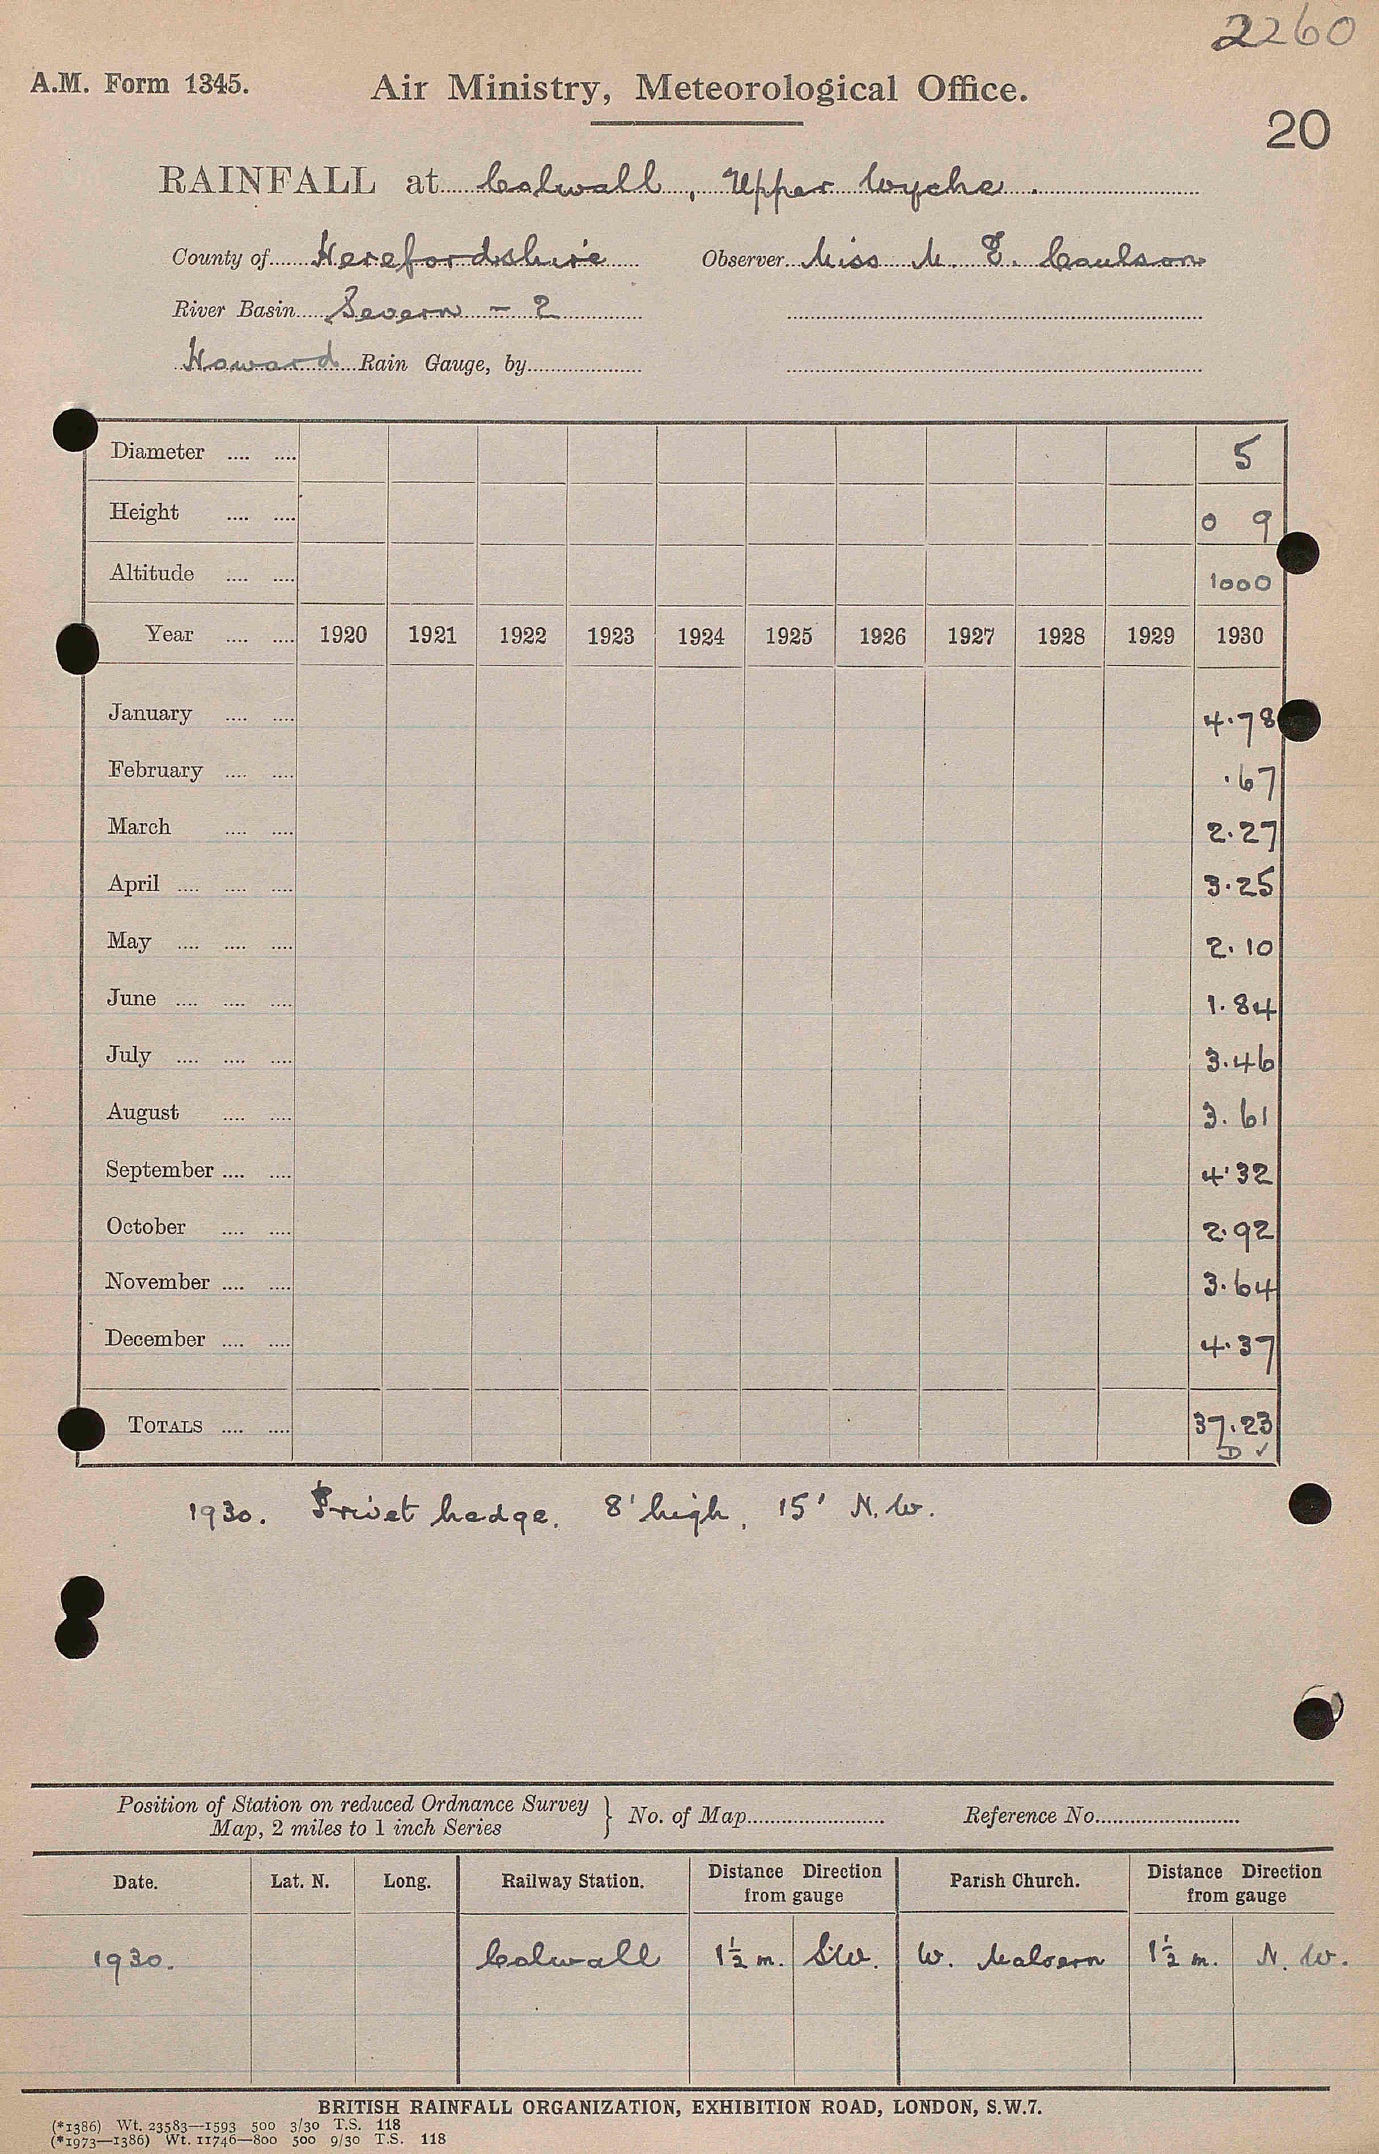 2260
A.M. Form 1345.
Air Ministry, Meteorological Office.
20
RAINFALL at Colwall, Upper Wyche.
County of Herefordshire Observer Miss M. E. Coulson
River Basin Severn - 2
Howard Rain Gauge, by
Diameter .... .... 5
Height .... .... 0 9
Altitude .... .... 1000
Year .... .... 1920 1921 1922 1923 1924 1925 1926 1927 1928 1929 1930
January .... .... 4.78
February .... .... .67
March .... .... 2.27
April .... .... .... 3.25
May .... .... .... 2.10
June .... .... .... 1.84
July .... .... .... 3.46
August .... .... 3.61
September .... .... 4.32
October .... .... 2.92
November .... .... 3.64
December .... .... 4.37
TOTALS .... .... 37.23
D ✓
1930. Privet hedge, 8' high, 15' N.W.
Position of Station on reduced Ordnance Survey
Map, 2 miles to 1 inch Series } No. of Map Reference No.
Date. Lat. N. Long. Railway Station. Distance Direction from gauge Parish Church. Distance Direction from gauge
1930. Colwall 1½ m. S.W. W. Malvern 1½ m. N.W.
BRITISH RAINFALL ORGANIZATION, EXHIBITION ROAD, LONDON, S.W.7.
(*1386) Wt. 23583—1593 500 3/30 T.S. 118
(*1973—1386) Wt. 11746—800 500 9/30 T.S. 118